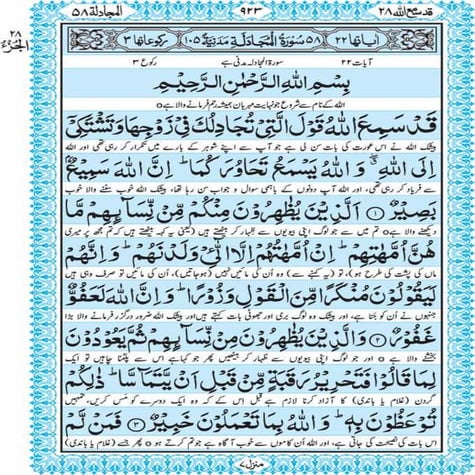 المجادلة ۵۸
۹۲۳
قد سمع الله ۲۸
۲۸
الجزء
اٰیاتھا ۲۲ ۵۸ سُوْرَةُ الْمُجَادَلَةِ مَدَنِیَّةٌ ۱۰۵ رکوعاتھا ۳
آیات ۲۲ سورۃ المجادلہ مدنی ہے رکوع ۳
بِسْمِ اللّٰهِ الرَّحْمٰنِ الرَّحِیْمِ
اللہ کے نام سے شروع جو نہایت مہربان ہمیشہ رحم فرمانے والا ہے
قَدْ سَمِعَ اللّٰهُ قَوْلَ الَّتِیْ تُجَادِلُكَ فِیْ زَوْجِهَا وَ تَشْتَكِیْۤ
بیشک اللہ نے اس عورت کی بات سن لی ہے جو آپ سے اپنے شوہر کے بارے میں تکرار کر رہی تھی اور اللہ
اِلَى اللّٰهِ ۖۗ وَ اللّٰهُ یَسْمَعُ تَحَاوُرَكُمَا ؕ اِنَّ اللّٰهَ سَمِیْعٌۢ
سے فریاد کر رہی تھی، اور اللہ آپ دونوں کے باہمی سوال و جواب سن رہا تھا، بیشک اللہ خوب سننے والا خوب
بَصِیْرٌ ۱ اَلَّذِیْنَ یُظٰهِرُوْنَ مِنْكُمْ مِّنْ نِّسَآىِٕهِمْ مَّا
دیکھنے والا ہے تم میں سے جو لوگ اپنی بیویوں سے ظہار کر بیٹھتے ہیں (یعنی یہ کہہ بیٹھتے ہیں کہ تم مجھ پر میری
هُنَّ اُمَّهٰتِهِمْ ؕ اِنْ اُمَّهٰتُهُمْ اِلَّا الّٰٓـِٔیْ وَلَدْنَهُمْ ؕ وَ اِنَّهُمْ
ماں کی پشت کی طرح ہو)، تو (یہ کہنے سے) وہ اُن کی مائیں نہیں (ہوجاتیں)، اُن کی مائیں تو صرف وہی ہیں
لَیَقُوْلُوْنَ مُنْكَرًا مِّنَ الْقَوْلِ وَ زُوْرًا ؕ وَ اِنَّ اللّٰهَ لَعَفُوٌّ
جنہوں نے اُن کو جنا ہے، اور بیشک وہ لوگ بری اور جھوٹی بات کہتے ہیں اور بیشک اللہ ضرور درگزر فرمانے والا بڑا
غَفُوْرٌ ۲ وَ الَّذِیْنَ یُظٰهِرُوْنَ مِنْ نِّسَآىِٕهِمْ ثُمَّ یَعُوْدُوْنَ
بخشنے والا ہے اور جو لوگ اپنی بیویوں سے ظہار کر بیٹھیں پھر جو کہا ہے اس سے پلٹنا چاہیں تو ایک
لِمَا قَالُوْا فَتَحْرِیْرُ رَقَبَةٍ مِّنْ قَبْلِ اَنْ یَّتَمَآسَّا ؕ ذٰلِكُمْ
گردن (غلام یا باندی) کا آزاد کرنا لازم ہے قبل اس کے کہ وہ ایک دوسرے کو مَس کریں، تمہیں
تُوْعَظُوْنَ بِهٖ ؕ وَ اللّٰهُ بِمَا تَعْمَلُوْنَ خَبِیْرٌ ۳ فَمَنْ لَّمْ
اس بات کی نصیحت کی جاتی ہے، اور اللہ اُن کاموں سے خوب آگاہ ہے جو تم کرتے ہو پھر جسے (غلام یا باندی)
منزل ۷